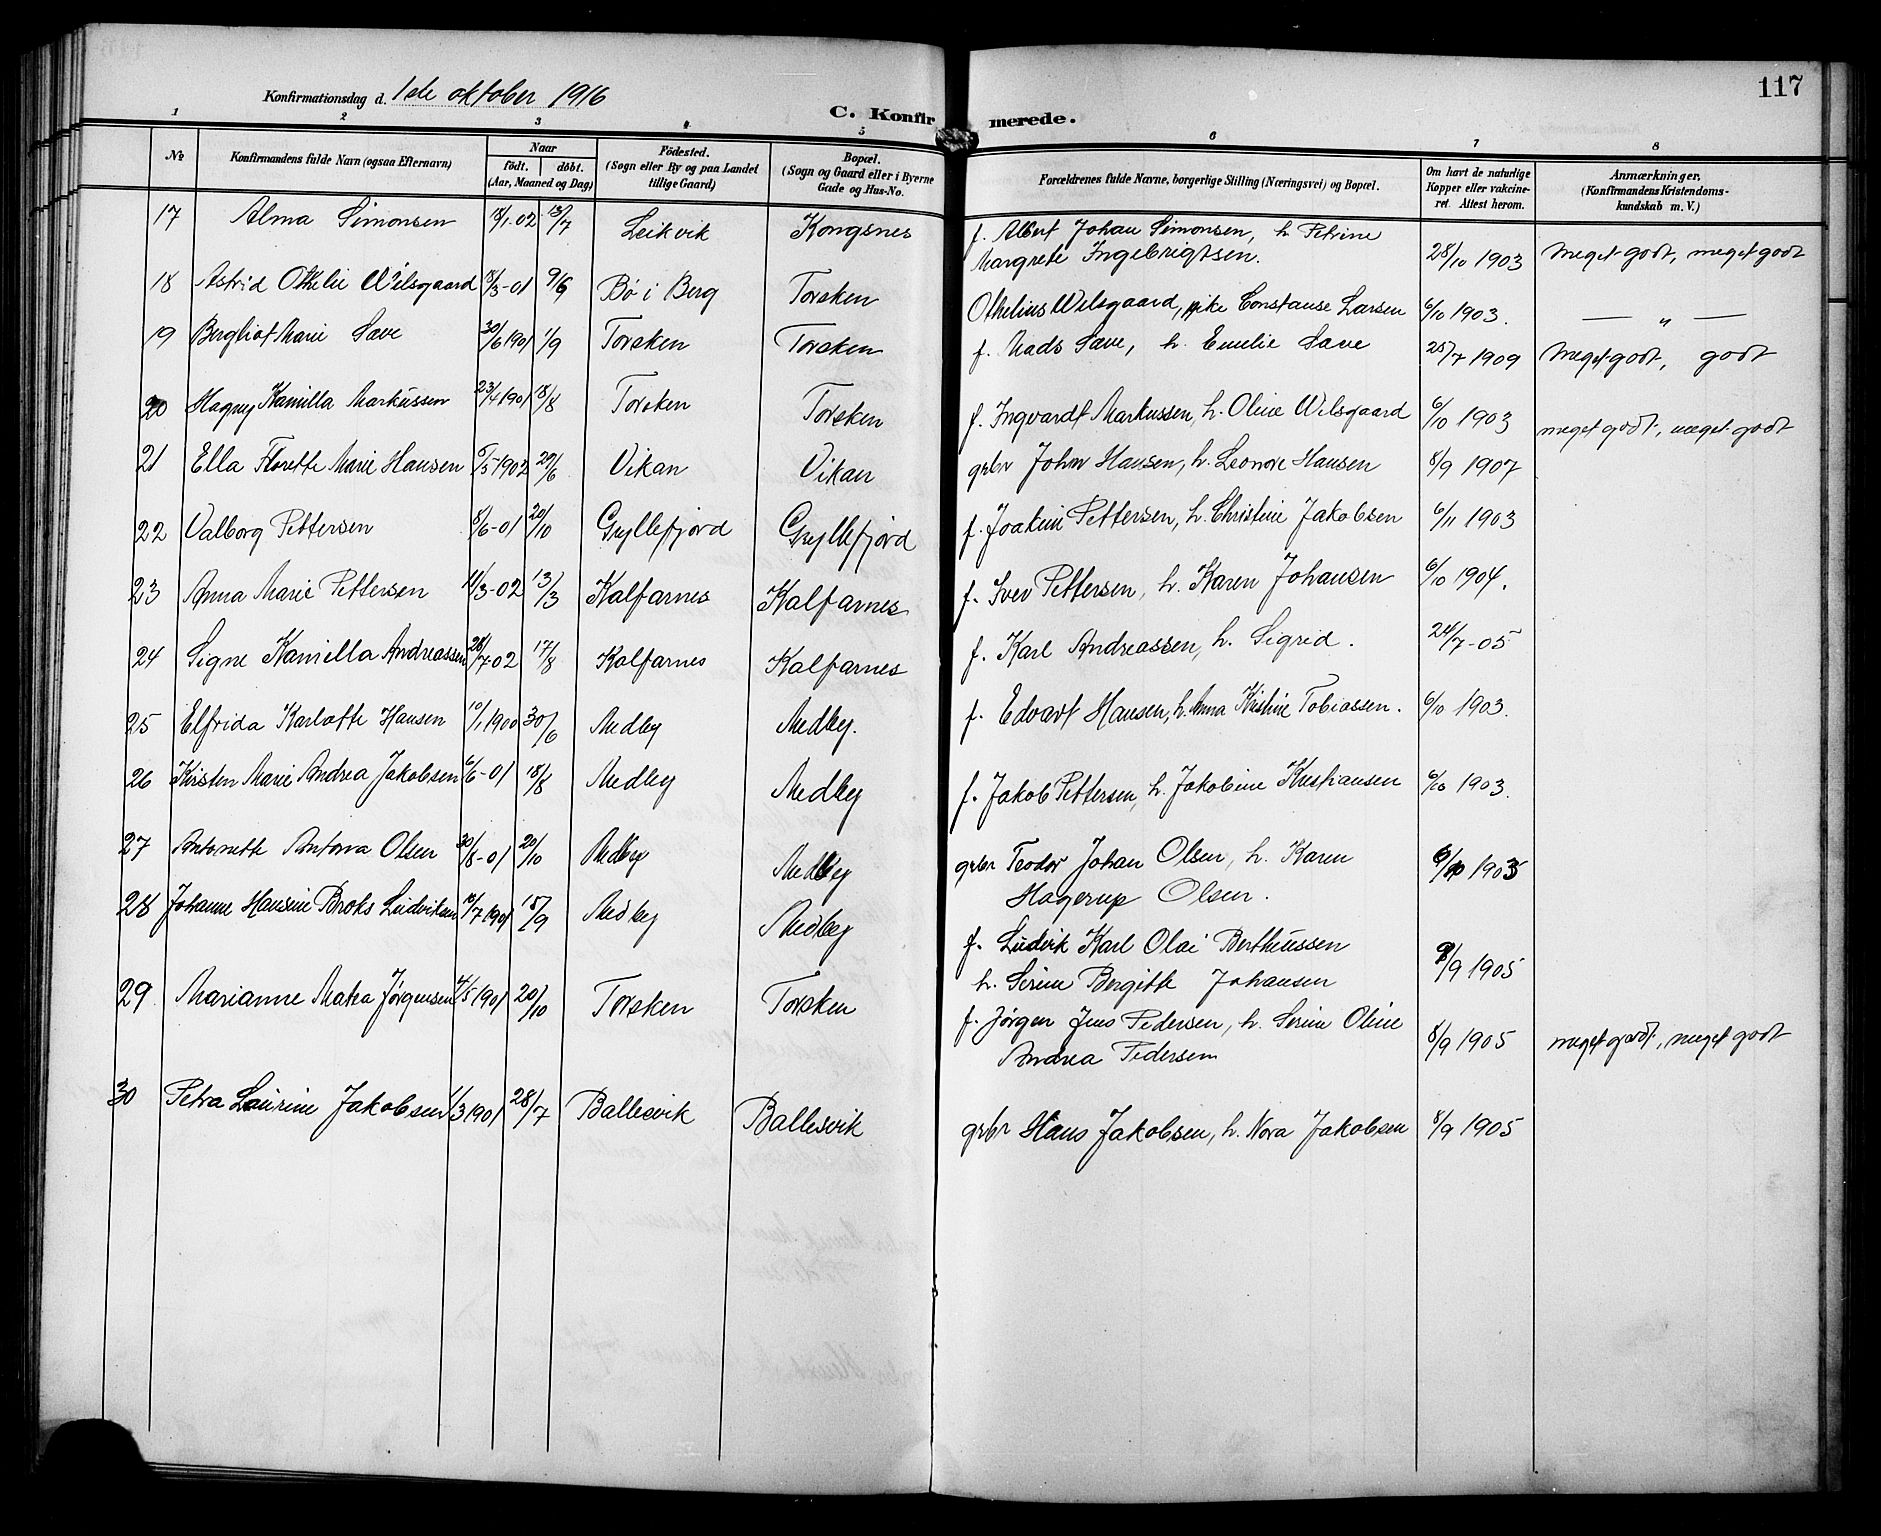 117
Konfirmationsdag d. 1ste oktober 1916
C. Konfirmerede.
1 2 3 4 5 6 7 8
No
Konfirmandens fulde Navn (ogsaa Efternavn)
Naar
födt. döbt.
(Aar, Maaned og Dag)
Födested.
(Sogn eller By og paa Landet
tillige Gaard)
Bopæl.
(Sogn og Gaard eller i Byerne
Gade og Hus-No.
Forældrenes fulde Navne, borgerlige Stilling (Næringsvei) og Bopæl.
Om havt de naturlige
Kopper eller vakcine-
ret. Attest herom.
Anmærkninger.
(Konfirmandens Kristendoms-
kundskab m. V.)
17 Alma Simonsen 18/1-02 13/7 Leikvik Kongsnes f. Albert Johan Simonsen, h. Petrine
Margrete Ingebrigtsen. 28/10 1903 meget godt, meget godt
18 Astrid Othelie Wilsgaard 18/3-01 9/6 Bø i Berg Torsken Othelius Wilsgaard, Constanse Larsen 6/10 1903. — " —
19 Bergliot Marie Save 30/6 1901 1/9 Torsken Torsken f. Mads Save, h. Emilie Save 25/7 1909 meget godt, godt
20 Hagny Kamilla Markussen 23/4 1901 18/8 Torsken Torsken f. Ingvardt Markussen, h. Oline Wilsgaard 6/10 1903 meget godt, meget godt
21 Ella Florette Marie Hansen 5/5 1902 29/6 Vikan Vikan grbr Johan Hansen, h. Leonore Hansen 8/9 1907
22 Valborg Pettersen 8/6-01 20/10 Gryllefjord Gryllefjord f. Joakim Pettersen, h. Christine Jakobsen 6/11 1903
23 Anna Marie Pettersen 11/3-02 13/3 Kalfarnes Kalfarnes f. Iver Pettersen, h. Karen Johansen 6/10 1904.
24 Signe Kamilla Andreassen 28/7-02 17/8 Kalfarnes Kalfarnes f. Karl Andreassen, h. Sigrid. 24/7-05
25 Elfrida Karlotte Hansen 10/1 1900 30/6 Medby Medby. f. Edvart Hansen, h. Anna Kristine Tobiassen. 6/10 1903.
26 Kirsten Marie Andrea Jakobsen 6/6-01 18/8 Medby Medby f. Jakob Pettersen, h. Jakobine Kristiansen 6/10 1903.
27 Antonette Antona Olsen 30/8-01 20/10 Medby Medby grbr Teodor Johan Olsen, h. Karen
Hagerup Olsen. 6/10 1903
28 Johanne Hansine Broks Ludviksen 10/7 1901 18/9 Medby Medby f. Ludvik Karl Olai Bertheussen
h. Serine Bergitte Johansen 8/9 1905
29 Marianne Matea Jørgensen 4/5 1901 20/10 Torsken Torsken f. Jørgen Jens Pedersen, h. Serine Oline
Andrea Pedersen 8/9 1905 meget godt, meget godt
30 Petra Laurine Jakobsen 1/3 1901 28/7 Ballesvik Ballesvik grbr Hans Jakobsen, h. Nora Jakobsen 8/9 1905